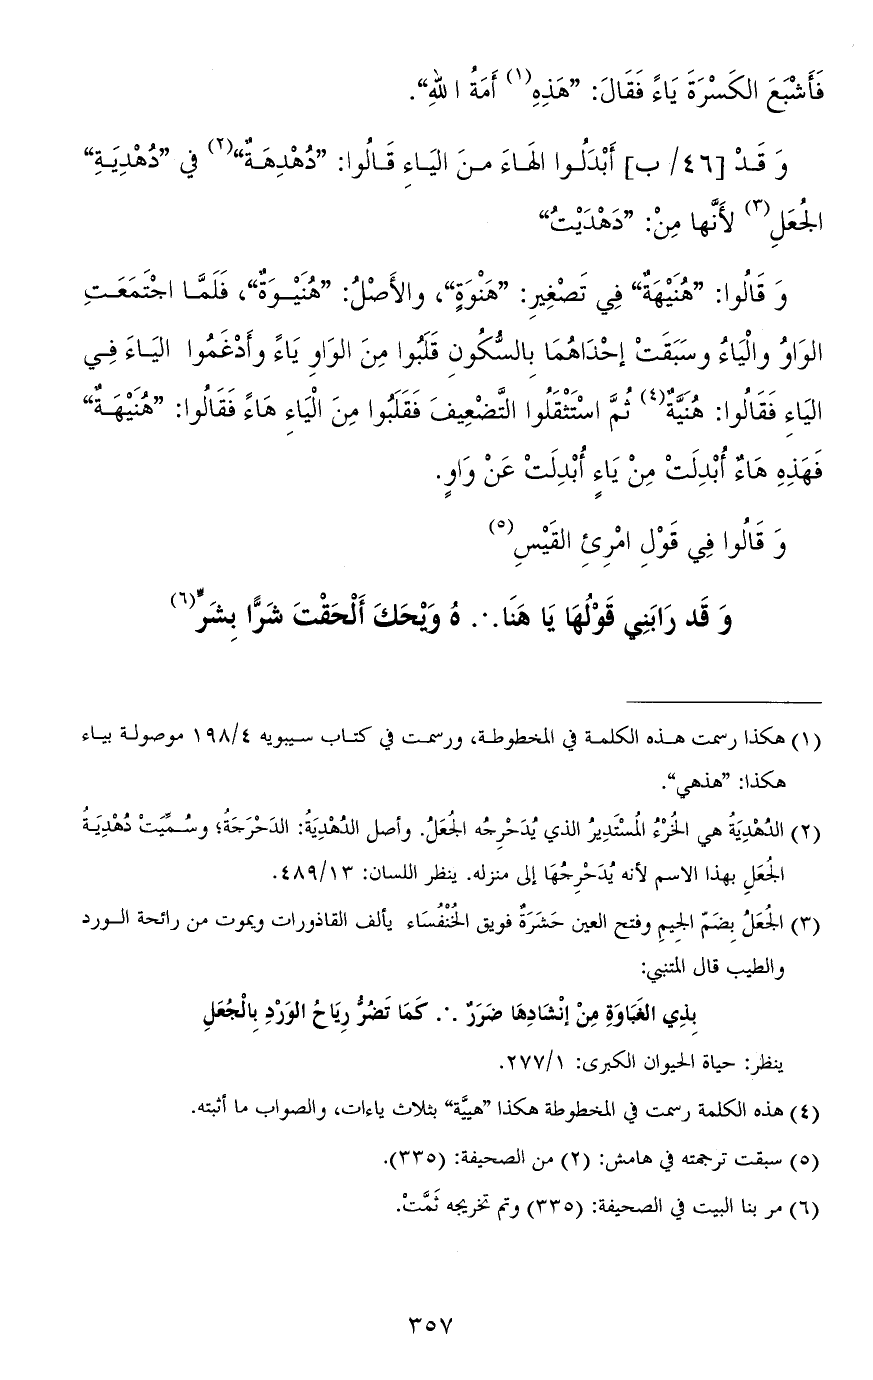 فَأَشْبَعَ الكَسْرَةَ يَاءً فَقَالَ: ”هَذِهِ(١) أَمَةُ اللهِ“.
وَ قَـدْ [٤٦/ ب] أَبْدَلُـوا الهَاءَ مـنَ اليَـاءِ قَـالُوا: ”دُهْدِهَةٌ“(٢) في ”دُهْدِيَـةِ“
الجُعَلِ(٣) لأَنَّها مِنْ: ”دَهْدَيْتُ“
وَ قَالُوا: ”هُنَيْهَةٌ“ فِي تَصْغِيرِ: ”هَنْوَةٍ“، والأَصْلُ: ”هُنَيْـوَةٌ“، فَلَمَّـا اجْتَمَعَـتِ
الوَاوُ والْيَاءُ وسَبَقَتْ إحْدَاهُمَا بالسُّكُونِ قَلَبُوا مِنَ الوَاوِ يَاءً وأَدْغَمُوا اليَـاءَ فِـي
اليَاءِ فَقَالُوا: هُنَيَّةٌ(٤) ثُمَّ اسْتَثْقَلُوا التَّضْعِيفَ فَقَلَبُوا مِنَ الْيَاءِ هَاءً فَقَالُوا: ”هُنَيْهَـةٌ“
فَهَذِهِ هَاءٌ أُبْدِلَتْ مِنْ يَاءٍ أُبْدِلَتْ عَنْ وَاوٍ.
وَ قَالُوا فِي قَوْلِ امْرِئِ القَيْسِ(٥)
وَ قَد رَابَنِي قَوْلُهَا يَا هَنَا.·. هُ وَيْحَكَ أَلْحَقْتَ شَرًّا بِشَرٍّ(٦)
(١) هكذا رسمت هـذه الكلمـة في المخطوطـة، ورسمـت في كتـاب سـيبويه ١٩٨/٤ موصولـة بيـاء
هكذا: ”هذهي“.
(٢) الدُهْدِيَةُ هي الخُرْءُ المُسْتَدِيرُ الذي يُدَحْرِجُه الجُعَلُ. وأصل الدُهْدِيَةُ: الدَحْرَجَةُ؛ وسُـمِّيَتْ دُهْدِيَـةُ
الجُعَلِ بهذا الاسم لأنه يُدَحْرِجُهَا إلى منزله. ينظر اللسان: ٤٨٩/١٣.
(٣) الجُعَلُ بِضَمّ الجِيمِ وفتح العين حَشَرَةٌ فويق الخُنْفُسَاء يألف القاذورات ويموت من رائحة الـورد
والطيب قال المتنبي:
بِذِي الغَبَاوَةِ مِنْ إنْشَادِهَا ضَرَرٌ .·. كَمَا تَضُرُّ رِيَاحُ الوَرْدِ بِالْجُعَلِ
ينظر: حياة الحيوان الكبرى: ٢٧٧/١.
(٤) هذه الكلمة رسمت في المخطوطة هكذا ”هييَّة“ بثلاث ياءات، والصواب ما أثبته.
(٥) سبقت ترجمته في هامش: (٢) من الصحيفة: (٣٣٥).
(٦) مر بنا البيت في الصحيفة: (٣٣٥) وتم تخريجه ثَمَّتْ.
٣٥٧